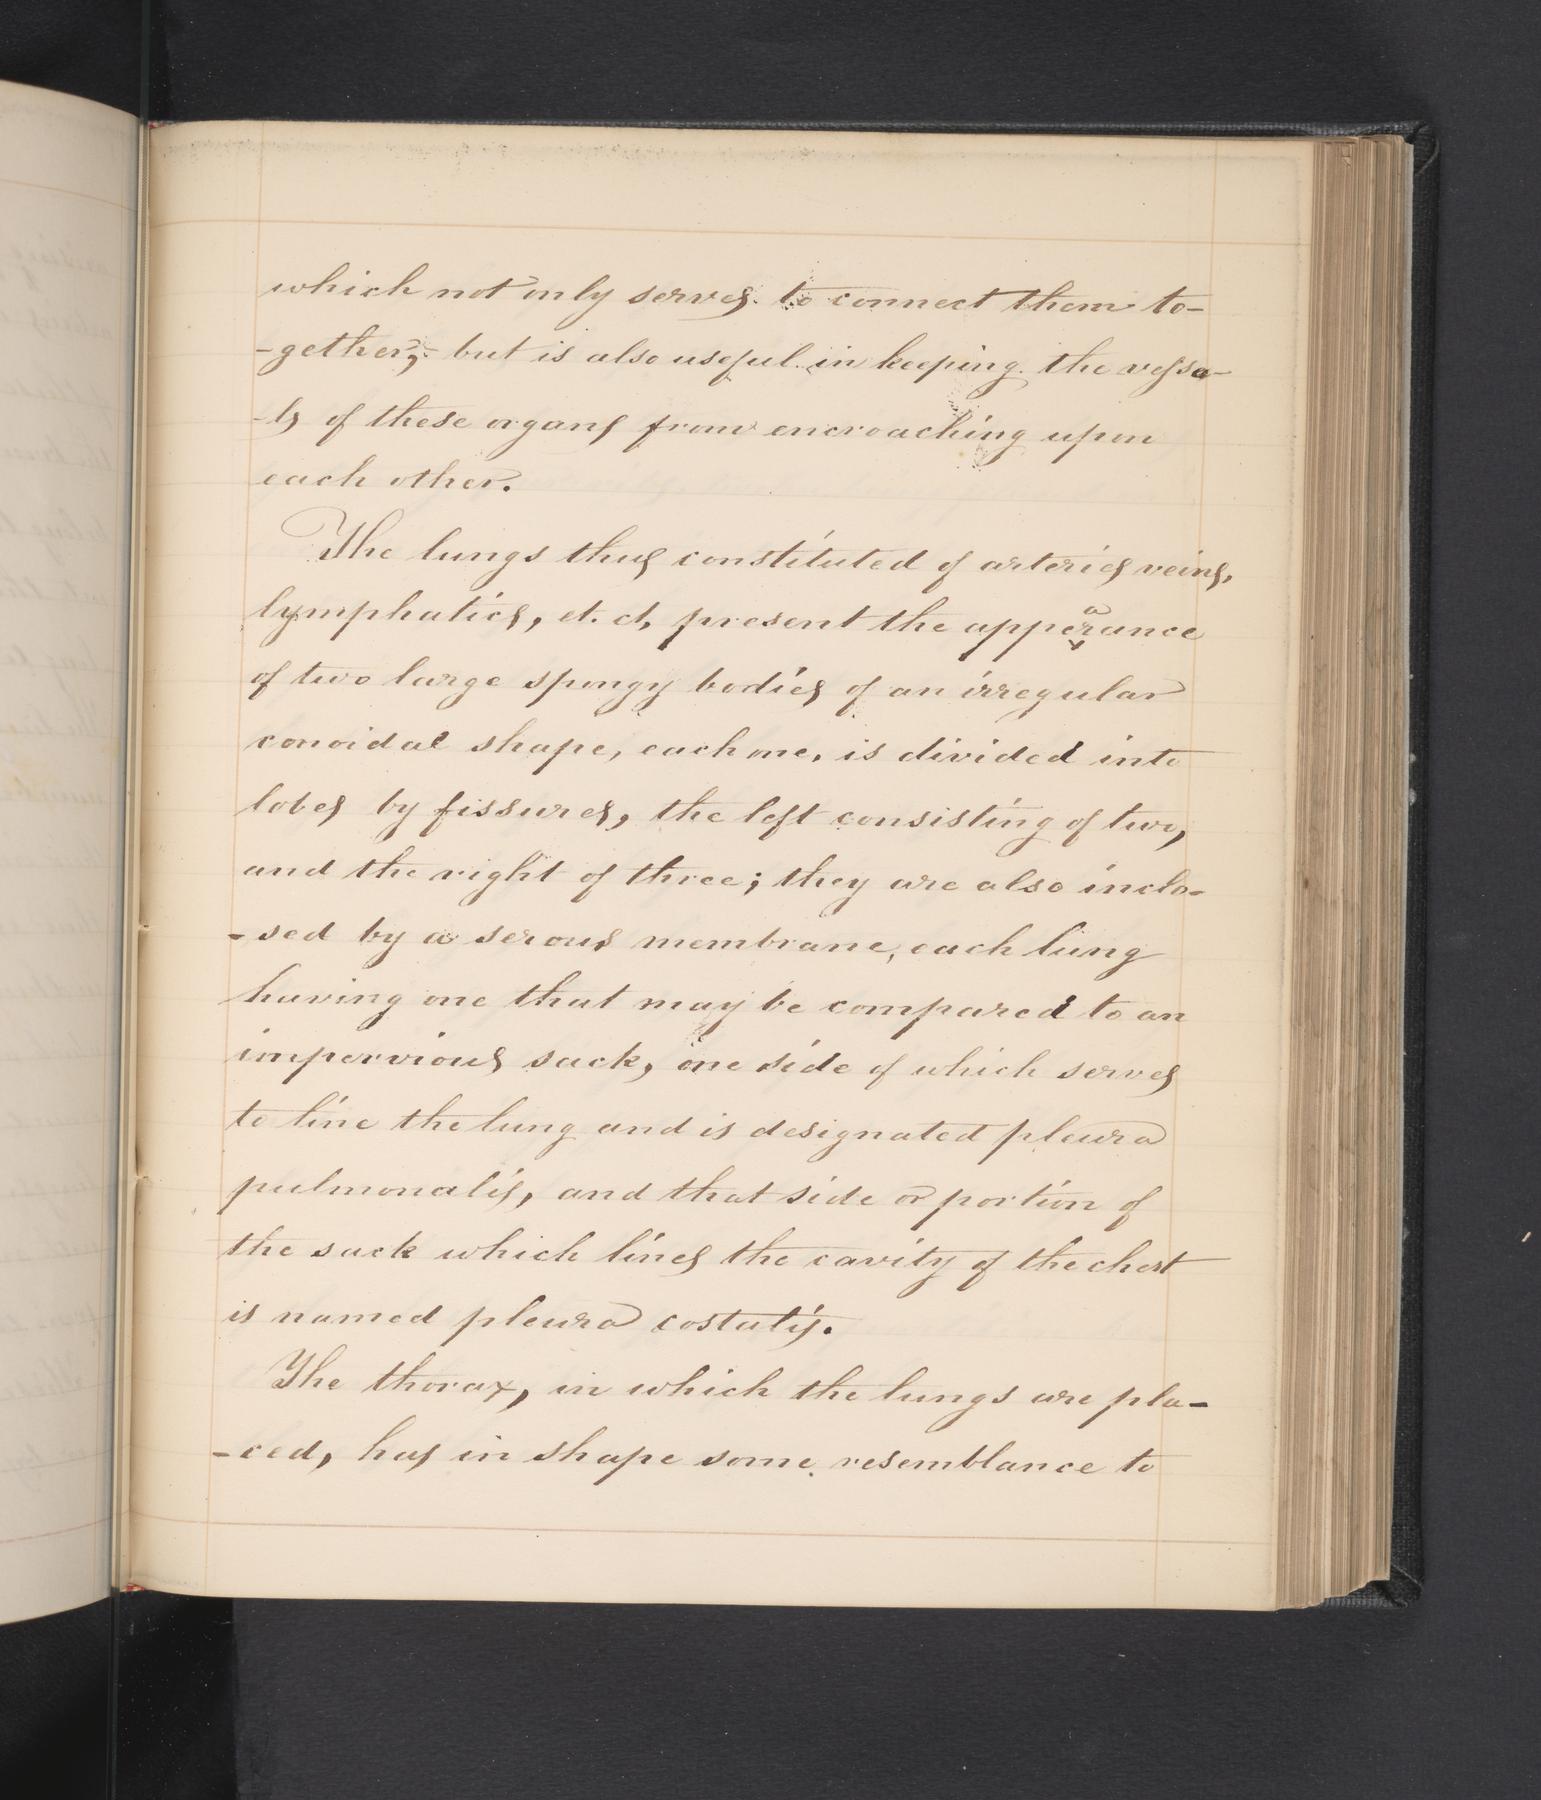 which not only serves to connect them to-
-gether, but is also useful in keeping the vessa-
-ls of these organs from encroaching upon
each other.
The lungs thus constituted of arteries veins,
lymphatics, et. ct, present the appearance
of two large spongy bodies of an irregular
conoidal shape, each one, is divided into
lobes by fissures, the left consisting of two,
and the right of three; they are also inclo-
-sed by a serous membrane, each lung
having one that may be compared to an
impervious sack, one side of which serves
to line the lung and is designated pleura
pulmonalis, and that side or portion of
the sack which lines the cavity of the chest
is named pleura costalis.
The thorax, in which the lungs are pla-
-ced, has in shape some resemblance to